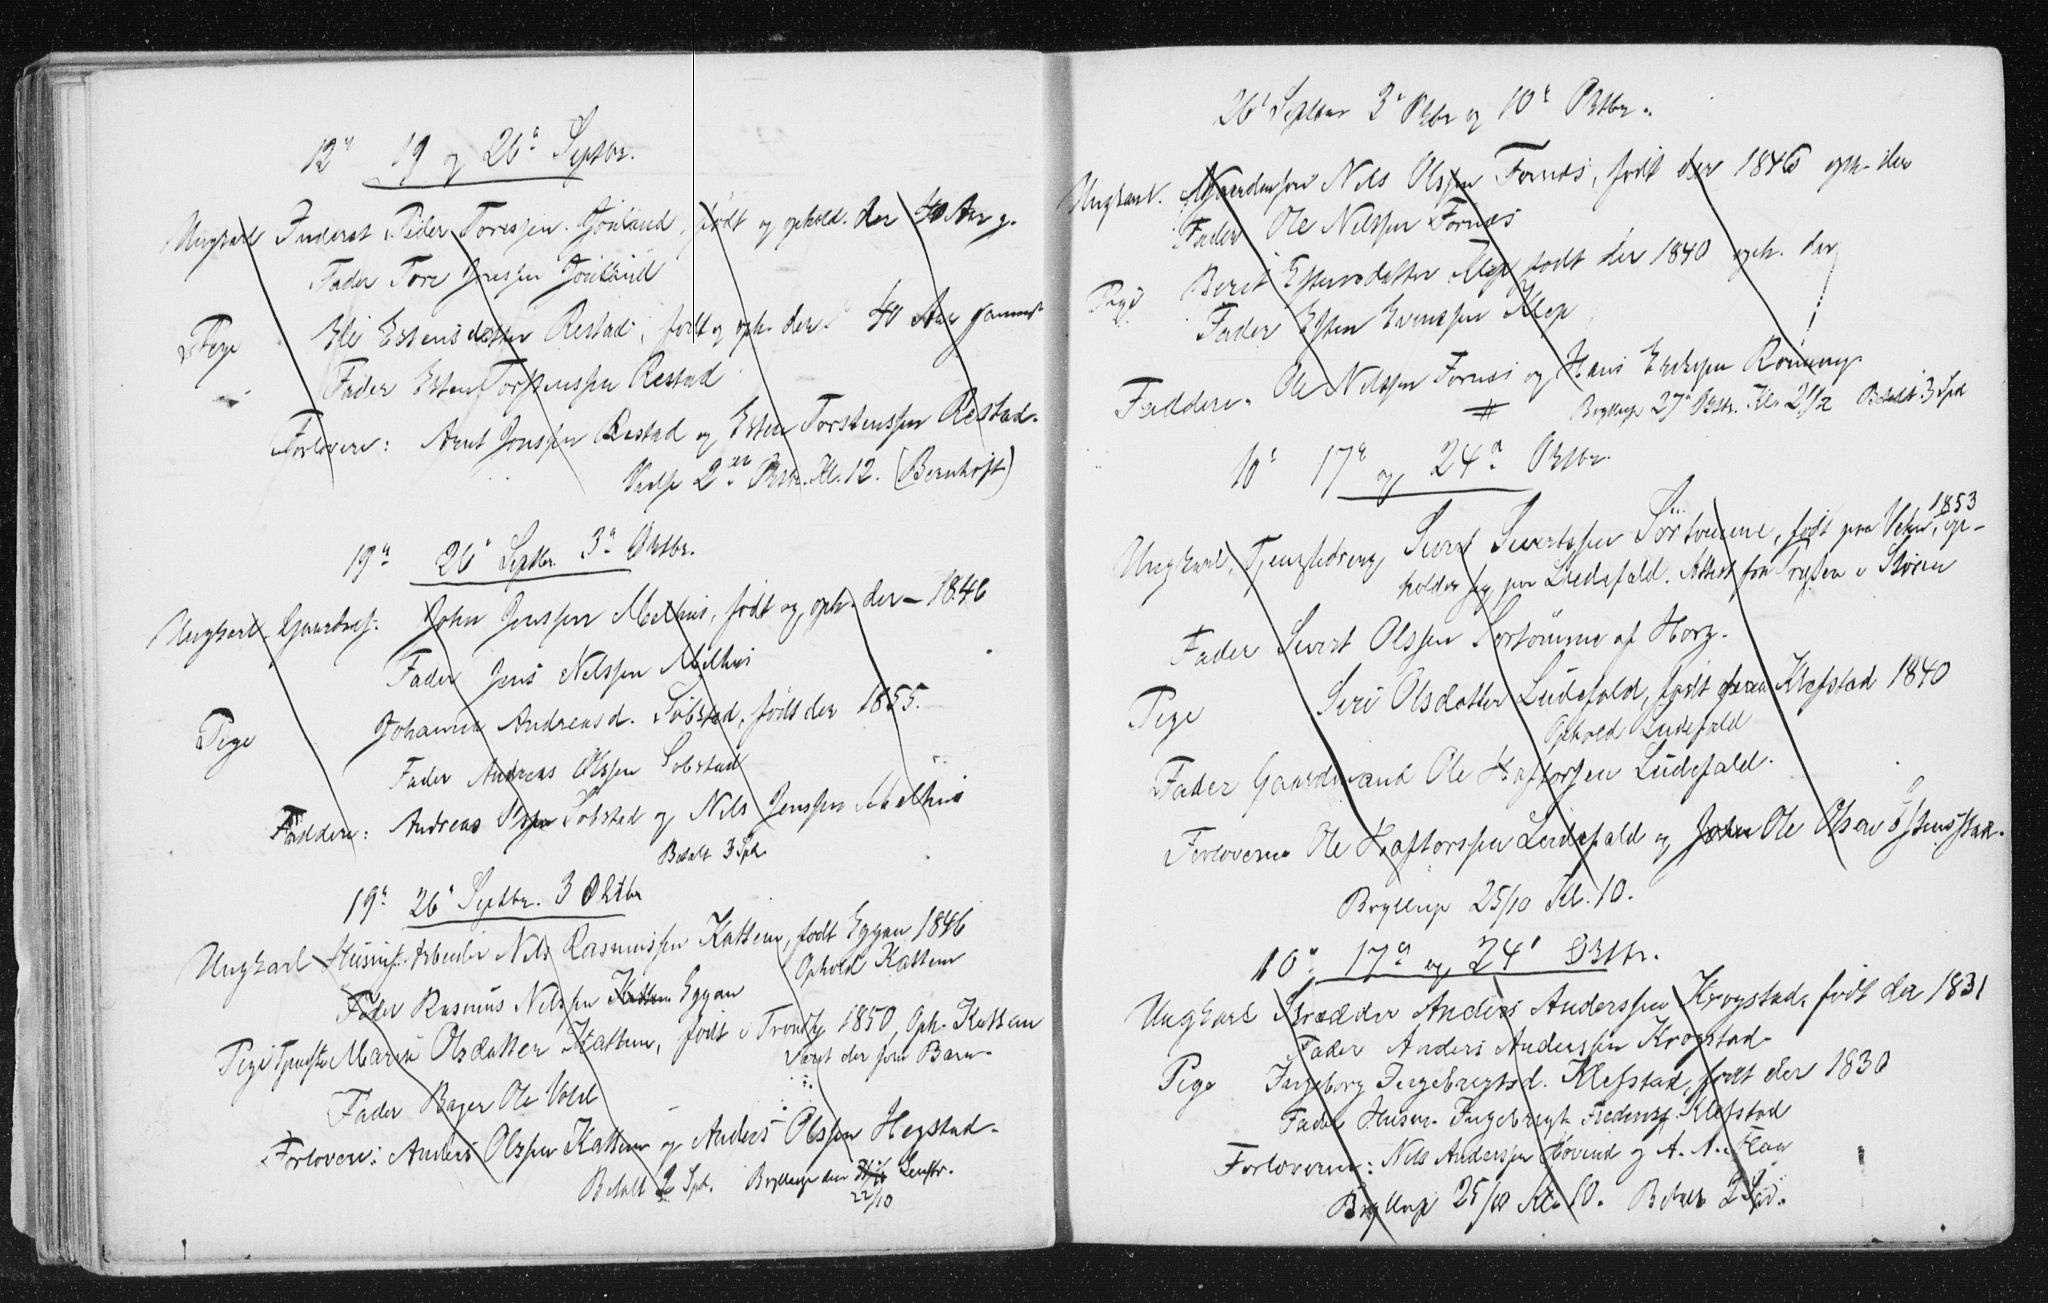 12te 19 og 26de Septbr.
Ungkarl Inderst Peder Toresen Gjölland, født og ophold. der 40 Aar g.
Fader Tore Jensen
Pige Eli Estensdatter Restad, født og oph. der 40 Aar gammel
Fader Esten Torstenssen Restad
Forlovere: Arnt Jonssen Restad og Esten Torstenssen Restad.
Vielse 2den Oktbr. Kl. 12. (Bernhoft)
19de 26de Septbr. 3de Oktbr.
Ungkarl Gaardmf. John Jenssen Melhus, født og oph. der 1846
Fader Jens Nilssen Melhus
Pige Johanna Andreasd. Söbstad, født der 1855.
Fader Andreas Olssen Sobstad
Faddere: Andreas Olssen Sobstad og Nils Jenssen Melhus
Betalt 3 Spd.
19de 26de Septbr. 3 Oktbr
Ungkarl Husmf. Arbeider Nils Rasmussen Kattem, født Eggan 1846
Ophold Kattem
Fader Rasmus Nilssen Kattem Eggan
Pige Marie Olsdatter Kattem, født i Trondhj 1850, Oph. Kattem
været der som Barn.
Fader Bager Ole Vold
Forlovere: Anders Olssen Kattem og Anders Olssen Hegstad.
Betalt 2 Spd. Bryllup den
22/10
26de Septbr 3de Oktbr og 10de Oktbr.
Ungkarl. Gaardmssøn Nils Olssen Fornes, født der 1846 oph. der
Fader Ole Nilssen Fornes
Pige Berit Estensdatter Klep født der 1840 oph. der
Fader Esten Evenssen Klep
Faddere. Ole Nilssen Fornes og Hans Erikssen Rönning.
# Bryllup 27de Oktbr. Kl. 2 1/2 Betalt 3 Spd
10de 17de og 24de Oktbr.
Ungkarl, Tjenestedreng, Sivert Sivertssen, født paa 1853, op-
holder sig paa Ludefald. Attest fra i Stören
Fader Sivert Olssen af Horg.
Pige Siri Olsdatter Ludefald, født Klefstad 1840
Ophold Ludefald
Fader Gaardmand Ole Haftorsen Ludefald.
Forlovere Ole Haftorssen Ludefald og John Ole Olsen
Bryllup 25/10 Kl. 10.
10de 17de og 24de Oktbr.
Ungkarl Skrædder Anders Anderssen Krogstad, født der 1831
Fader Anders Anderssen Krogstad
Pige Ingeborg Ingebrigtsd. Klefstad, født der 1830
Fader Husm. Ingebrigt Klefstad
Forlovere: Nils Anderssen Hovind og A. A. Flaa
Bryllup 25/10 Kl. 10. Betalt 2 Spd.